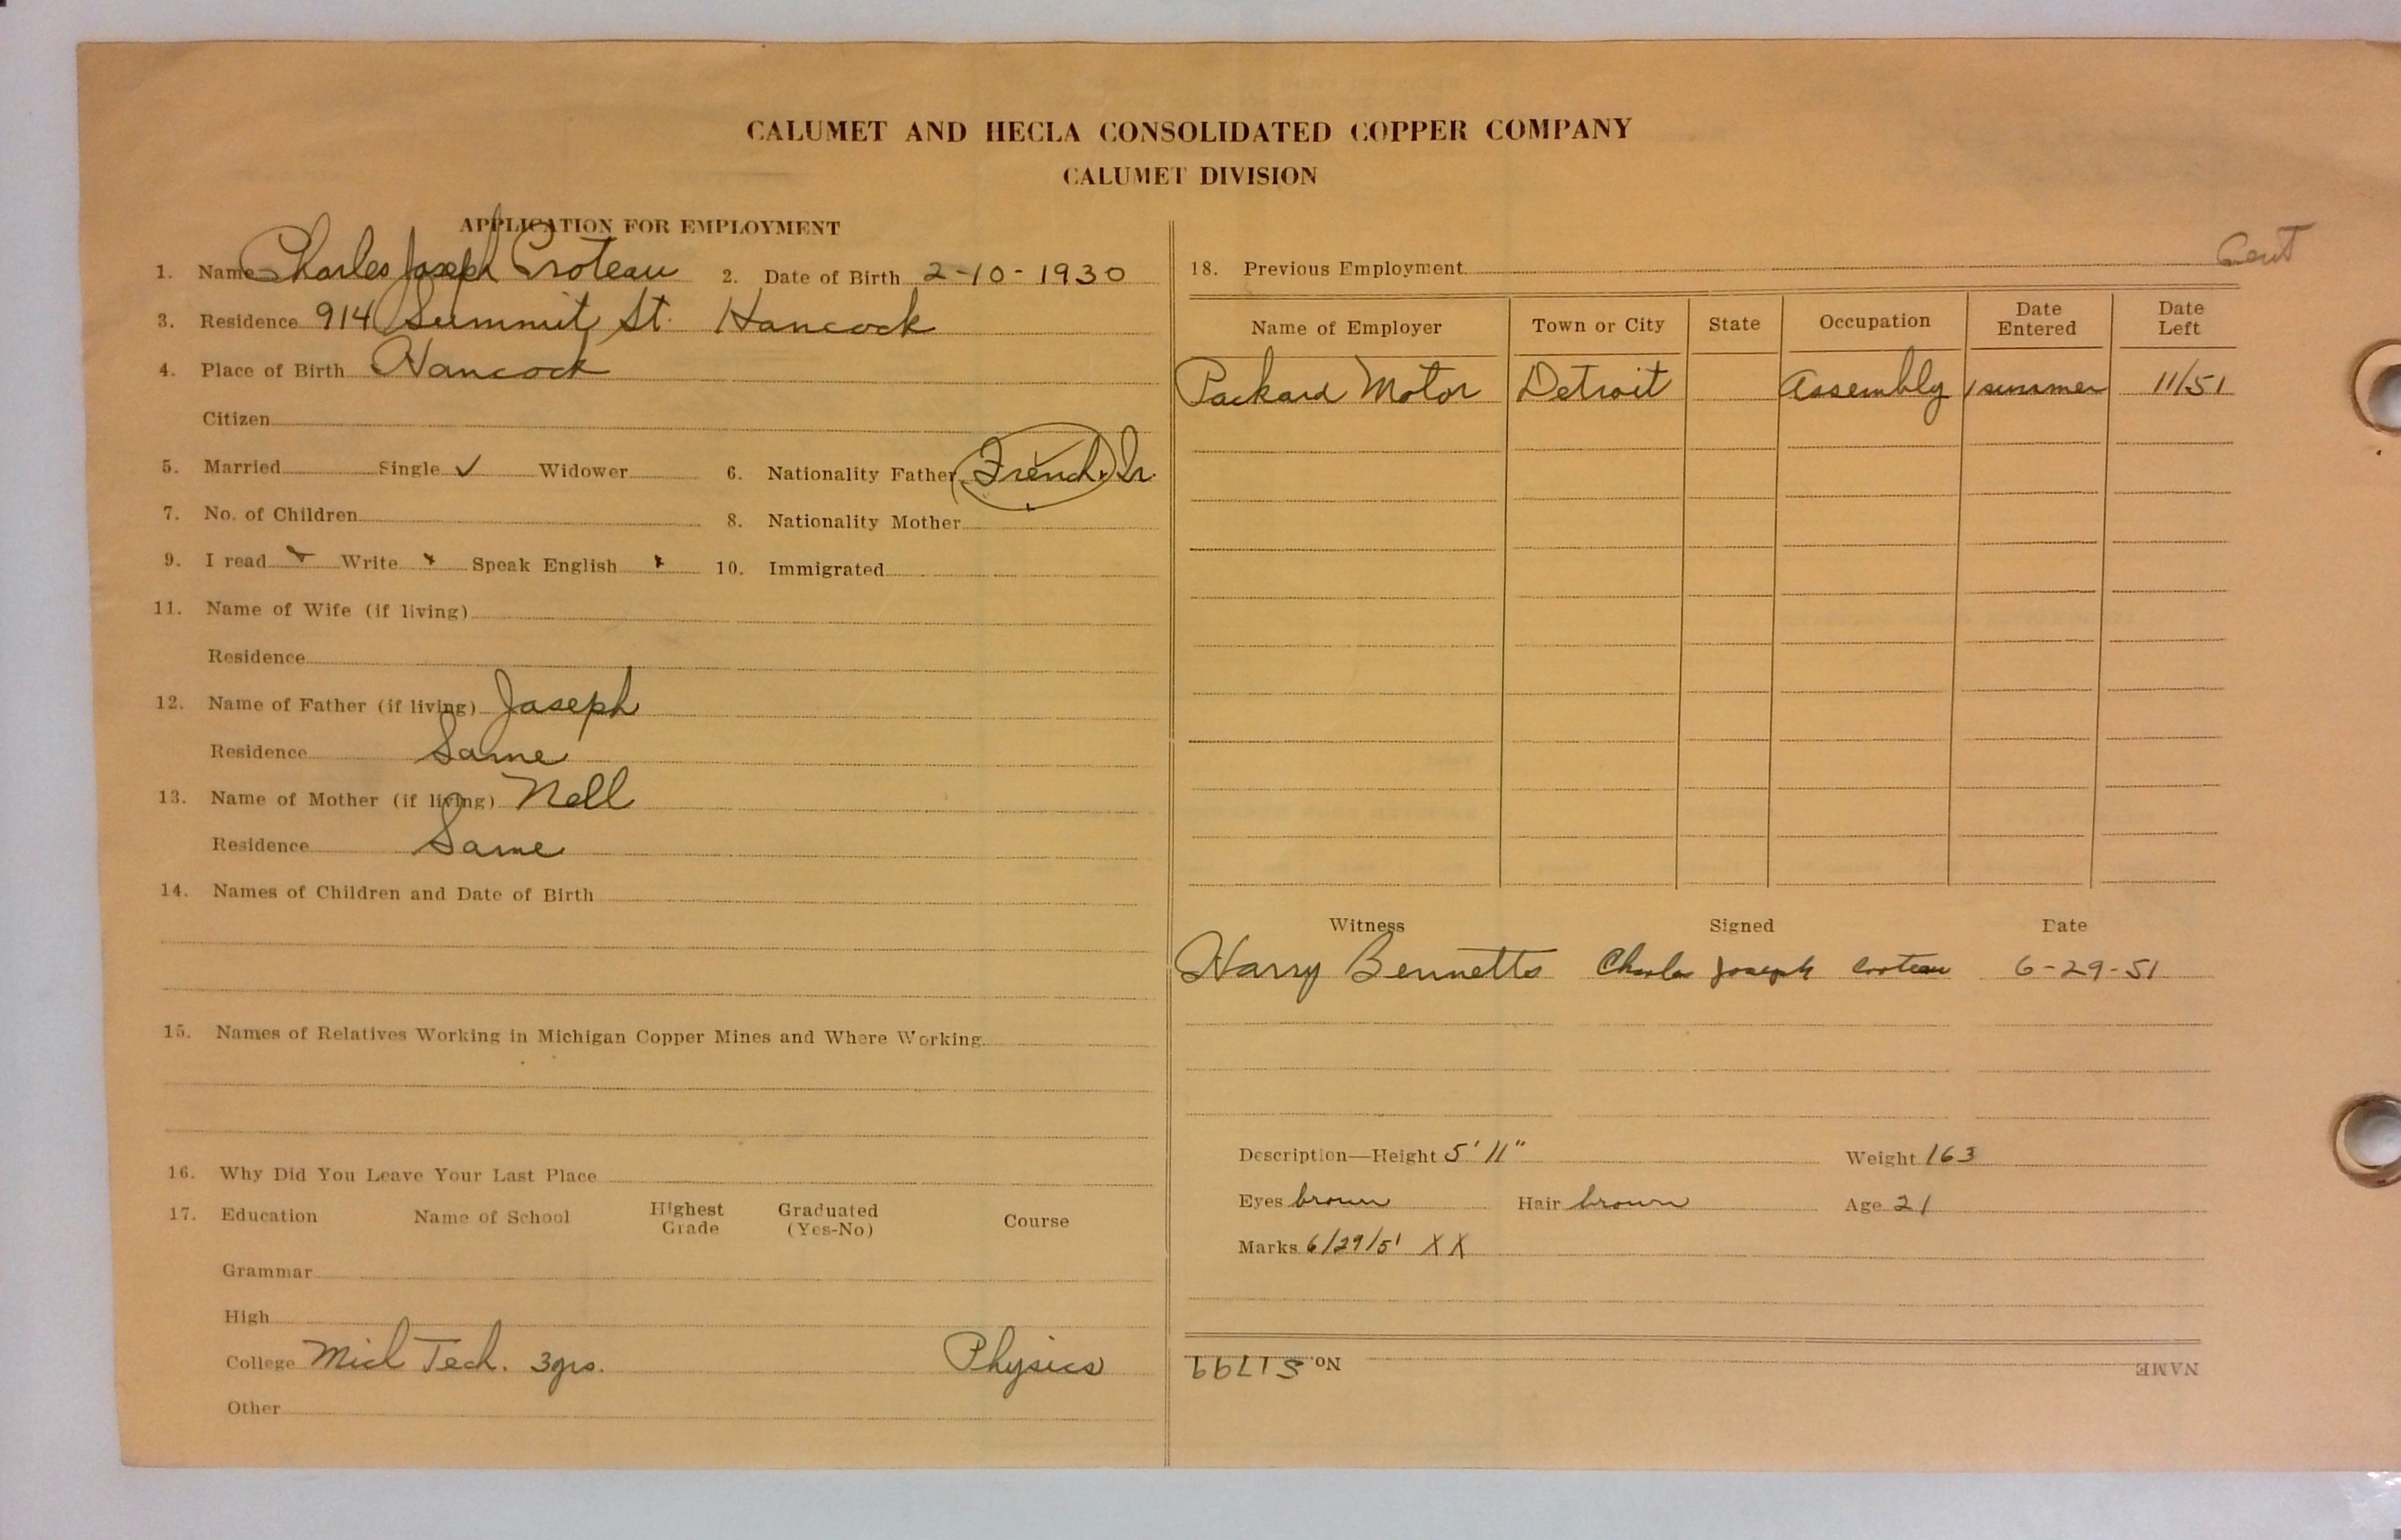 CALUMET AND HECLA CONSOLIDATED COPPER COMPANY
CALUMET DIVISION
APPLICATION FOR EMPLOYMENT
1. Name Charles Joseph Croteau 2. Date of Birth 2-10-1930
3. Residence 914 Summit St. Hancock
4. Place of Birth Hancock
Citizen
5. Married Single ✓ Widower 6. Nationality Father French Ir.
7. No. of Children 8. Nationality Mother
9. I read Write Speak English 10. Immigrated
11. Name of Wife (if living)
Residence
12. Name of Father (if living) Joseph
Residence Same
13. Name of Mother (if living) Nell
Residence Same
14. Names of Children and Date of Birth
15. Names of Relatives Working in Michigan Copper Mines and Where Working
16. Why Did You Leave Your Last Place
17. Education Name of School Highest Grade Graduated (Yes-No) Course
Grammar
High
College Mich Tech. 3yrs. Physics
Other
Cent
18. Previous Employment
Name of Employer Town or City State Occupation Date Entered Date Left
Packard Motor Detroit Assembly 1 summer 11/51
Witness Signed Date
Harry Bennetts Charles Joseph Croteau 6-29-51
Description—Height 5' 11" Weight 163
Eyes brown Hair brown Age 21
Marks 6/29/51 XX
NAME No. 51799